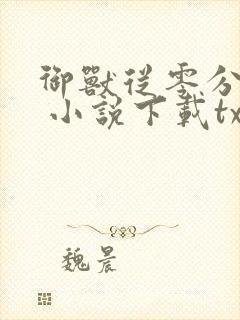 御獸從零分
小說下載tx
魏晨